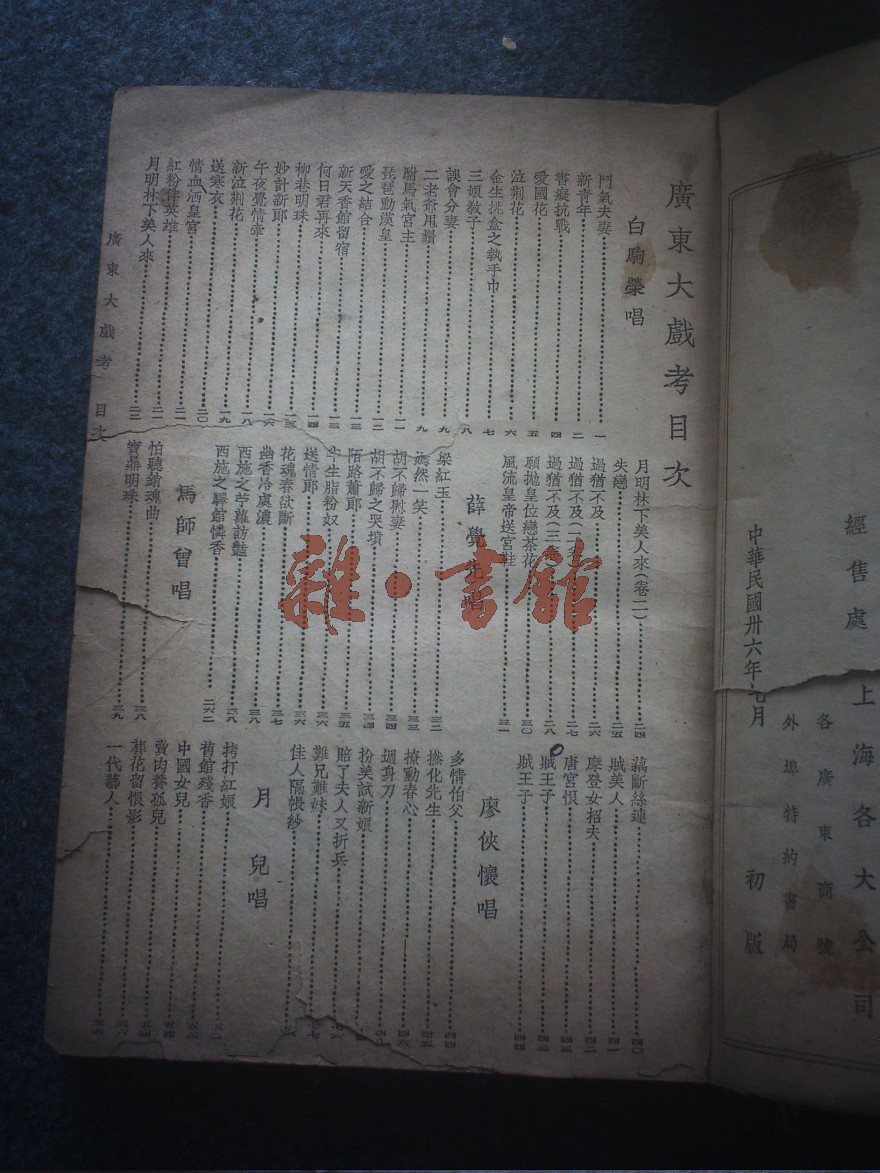 中華民國卅六年七月初版
經售處 上海各大公司
各廣東商號
外埠特約書局
廣東大戲考目次
白駒榮唱
鬥氣夫妻 一
新青年 二
書癡抗戰 四
愛國花 五
泣荆花 六
金生挑盒之執手巾 七
三娘教子 八
誤會分妻 九
二老爺甩鬚 九
駙馬氣宮主
琵琶動漢皇
愛之結合
新天香館留宿
何日君再來 一四
柳巷明珠
妙計新郎 一六
午夜覺情牽 一八
新泣荆花 一九
送寒衣 二〇
情血洒皇宮
紅粉伴英雄 二一
月明林下美人來
月明林下美人來(卷二) 二四
失戀 二五
過猶不及 二六
過猶不及(二卷) 二七
過猶不及(三卷) 二八
願拋皇位戀茶花 三〇
風流皇帝送宮娃 三一
薛覺先唱
梁紅玉
嫣然一笑
胡不歸慰妻
胡不歸之哭墳
陌路蕭郎
半生脂粉奴
送情郎
花魂春欲斷
幽香冷處濃
西施之苧蘿訪艷
西施之驛館憐香
馬師曾唱
怕聽銷魂曲 三八
寶鼎明珠 三九
藕斷絲連 四〇
賊美人 四一
摩登女招夫 四二
唐宮恨
賊王子
賊王子
廖俠懷唱
多情伯父
撚化先生
撩動春心
週身刀
扮美試新娘
賠了夫人又折兵
難兄難妹
佳人隔帳紗
月兒唱
拷打紅娘
舊館殘香
中國女兒
賣肉養孤兒
葬花留恨影
一代藝人
廣東大戲考 目次
雜·書館